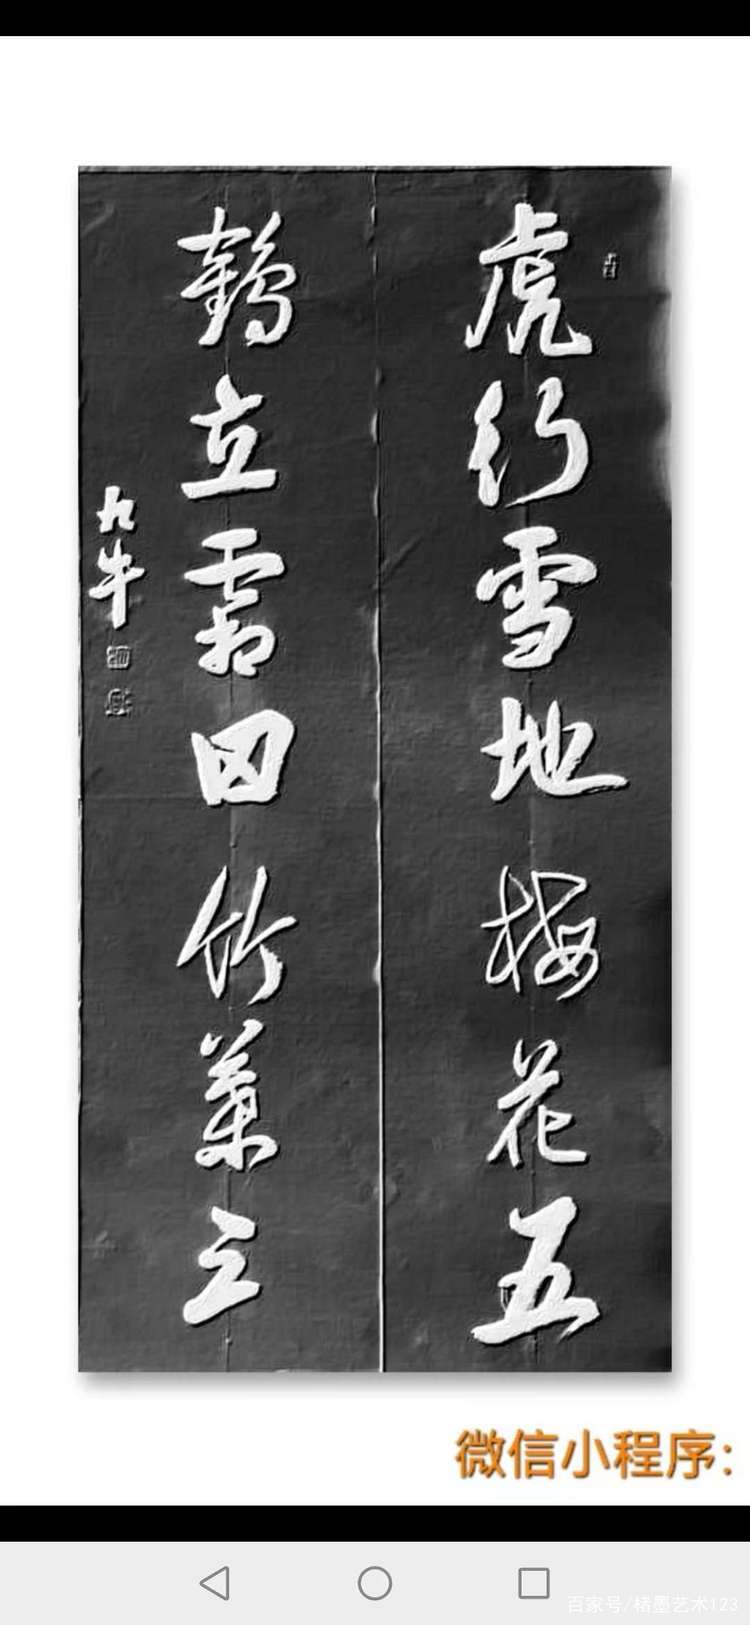 虎行雪地梅花五
鶴立霜田竹葉三
九牛
微信小程序:
百家号/楮墨艺术123